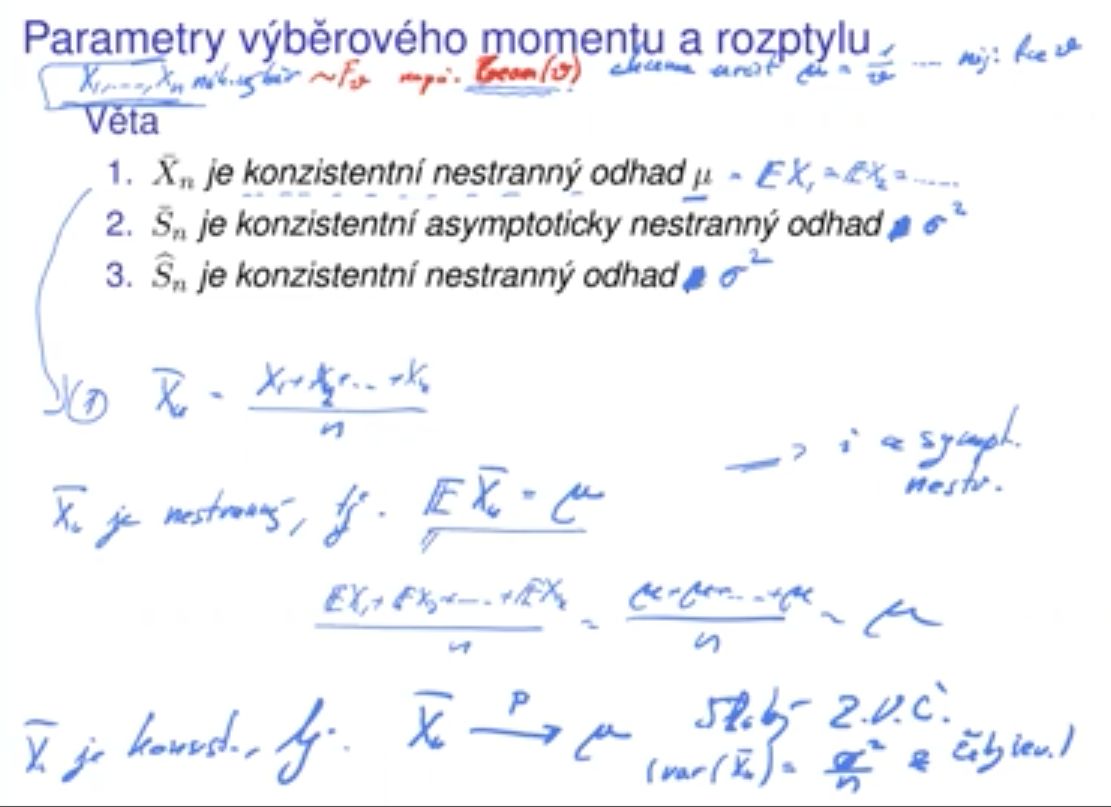 Parametry výběrového momentu a rozptylu
X₁,...,Xₙ náh. výběr ~F_ϑ např. Geom(ϑ) chceme určit μ = 1/ϑ .... něj. fce ϑ
Věta
1. X̄ₙ je konzistentní nestranný odhad μ = 𝔼X₁ = 𝔼X₂ = .....
2. S̄ₙ je konzistentní asymptoticky nestranný odhad σ²
3. Ŝₙ je konzistentní nestranný odhad σ²
① X̄ₙ = (X₁+X₂+...+Xₙ)/n
→ i asympt.
nestr.
X̄ₙ je nestranný, tj. 𝔼X̄ₙ = μ
(𝔼X₁+𝔼X₂+...+𝔼Xₙ)/n = (μ+μ+...+μ)/n = μ
X̄ₙ je konzist., tj. X̄ₙ —P→ μ Slabý Z.V.Č.
(var(X̄ₙ) = σ²/n & Čebyšev.)